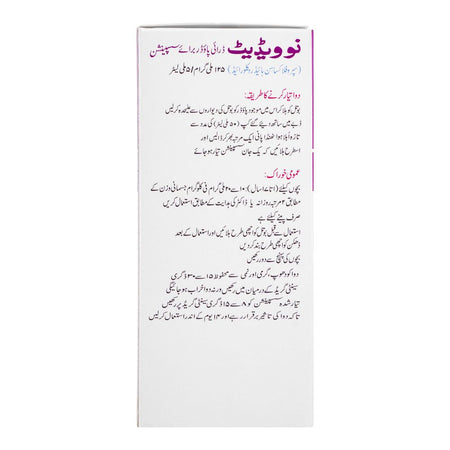 نوویڈیٹ ڈرائی پاؤڈر برائے سسپینشن
(سپروفلاکساسن ہائیڈروکلورائیڈ) ۱۲۵ ملی گرام/۵ ملی لیٹر
دوا تیار کرنے کا طریقہ:
بوتل کو ہلا کر اس میں موجود پاؤڈر کو بوتل کی دیواروں سے علیحدہ کر لیں
ڈبے میں ساتھ دیئے گئے کپ (۵۰ ملی لیٹر) کی مدد سے
تازہ اُبلا ہوا ٹھنڈا پانی ایک مرتبہ بھر کر ڈالیں اور
اسطرح ہلائیں کہ یک جان سسپینشن تیار ہو جائے
عمومی خوراک:
بچوں کیلئے (۱ تا ۱۷ سال): ۱۰ سے ۲۰ ملی گرام فی کلوگرام جسمانی وزن کے
مطابق ۲ مرتبہ روزانہ یا ڈاکٹر کی ہدایت کے مطابق استعمال کریں
صرف پینے کیلئے ہے
استعمال سے قبل بوتل کو اچھی طرح ہلائیں اور استعمال کے بعد
ڈھکن کو اچھی طرح بند کر دیں
بچوں کی پہنچ سے دور رکھیں
دوا کو دھوپ، گرمی اور نمی سے محفوظ ۱۵ سے ۳۰ ڈگری
سینٹی گریڈ کے درمیان میں رکھیں ورنہ دوا خراب ہو جائیگی
تیار شدہ سسپینشن کو ۸ سے ۱۵ ڈگری سینٹی گریڈ پر رکھیں
تاکہ دوا کی تاثیر برقرار رہے اور ۱۴ یوم کے اندر استعمال کر لیں